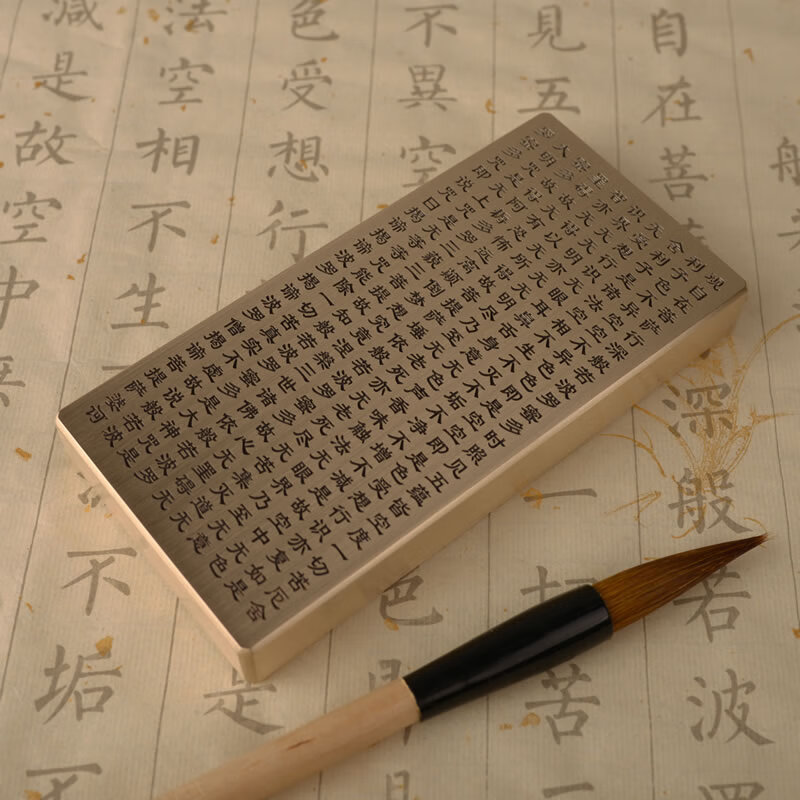 观自在菩萨行深般若波罗蜜多时照见五蕴皆空度一切苦厄舍
利子色不异空空不异色色即是空空即是色受想行识亦复如是
舍利子是诸法空相不生不灭不垢不净不增不减是故空中无色
无受想行识无眼耳鼻舌身意无色声香味触法无眼界乃至无意
识界无无明亦无无明尽乃至无老死亦无老死尽无苦集灭道无
智亦无得以无所得故菩提萨埵依般若波罗蜜多故心无罣碍无
罣碍故无有恐怖远离颠倒梦想究竟涅槃三世诸佛依般若波罗
蜜多故得阿耨多罗三藐三菩提故知般若波罗蜜多是大神咒是
大明咒是无上咒是无等等咒能除一切苦真实不虚故说般若波
罗蜜多咒即说咒曰揭谛揭谛波罗揭谛波罗僧揭谛菩提萨婆诃
自在菩
深般若波
見五
一切苦
不異空
色即
色受想行
是
法空相不生
不垢不
減是故空中